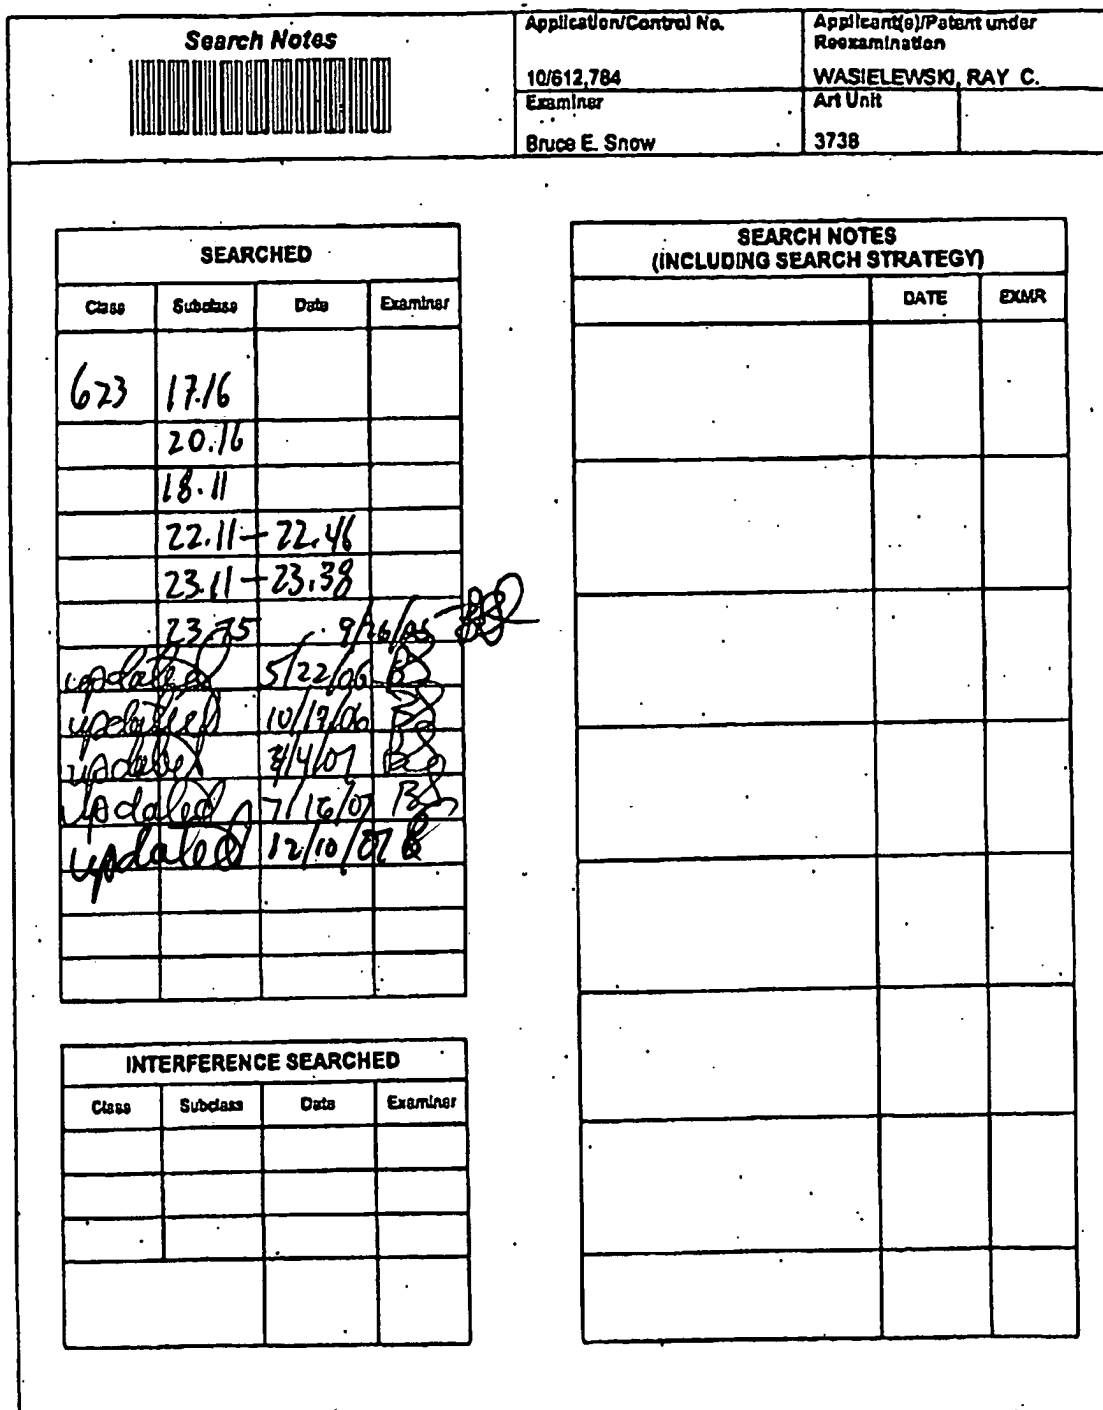 Search Notes
Application/Control No.
Applicant(s)/Patent under
Reexamination
10/612,784
WASIELEWSKI, RAY C.
Examiner
Art Unit
Bruce E. Snow
3738
SEARCHED
Class Subclass Date Examiner
623 17.16
20.16
18.11
22.11 – 22.46
23.11 – 23.38
23.75 9/26/05
updated 5/22/06 BS
updated 10/19/06 BS
updated /4/07 BS
updated 7/16/07 BS
updated 12/10/07
INTERFERENCE SEARCHED
Class Subclass Date Examiner
SEARCH NOTES
(INCLUDING SEARCH STRATEGY)
DATE EXMR